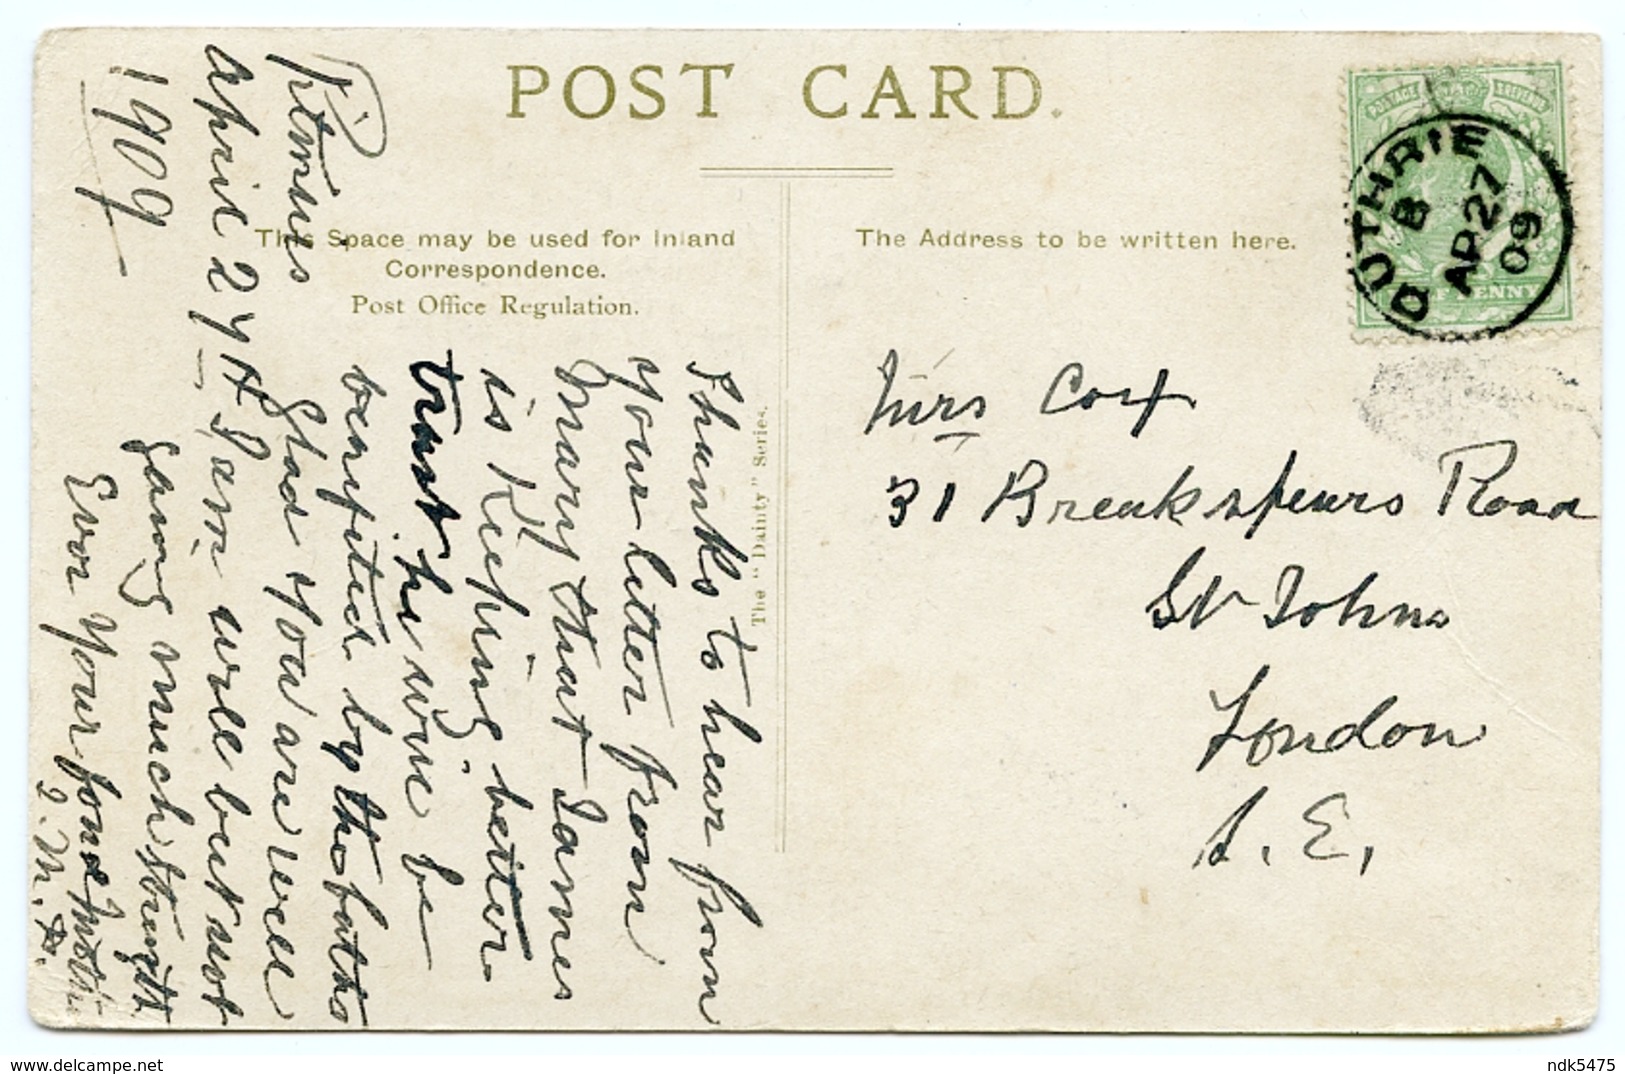 POST CARD.
This Space may be used for Inland
Correspondence.
Post Office Regulation.
The Address to be written here.
The "Dainty" Series.
POSTAGE & REVENUE
HALF PENNY
GUTHRIE
B
AP 27
09
Pitmuis
April 27th
1909
Thanks to hear from
your letter from
Mary that James
is Keeping better
trust he will be
benefited by the baths
Glad you are well
I am well but not
gaing much strength
Ever Your fond Mother
J. M. H.
Mrs Cox
31 Breakspears Road
St Johns
London
S. E.
delcampe.net
ndk5475